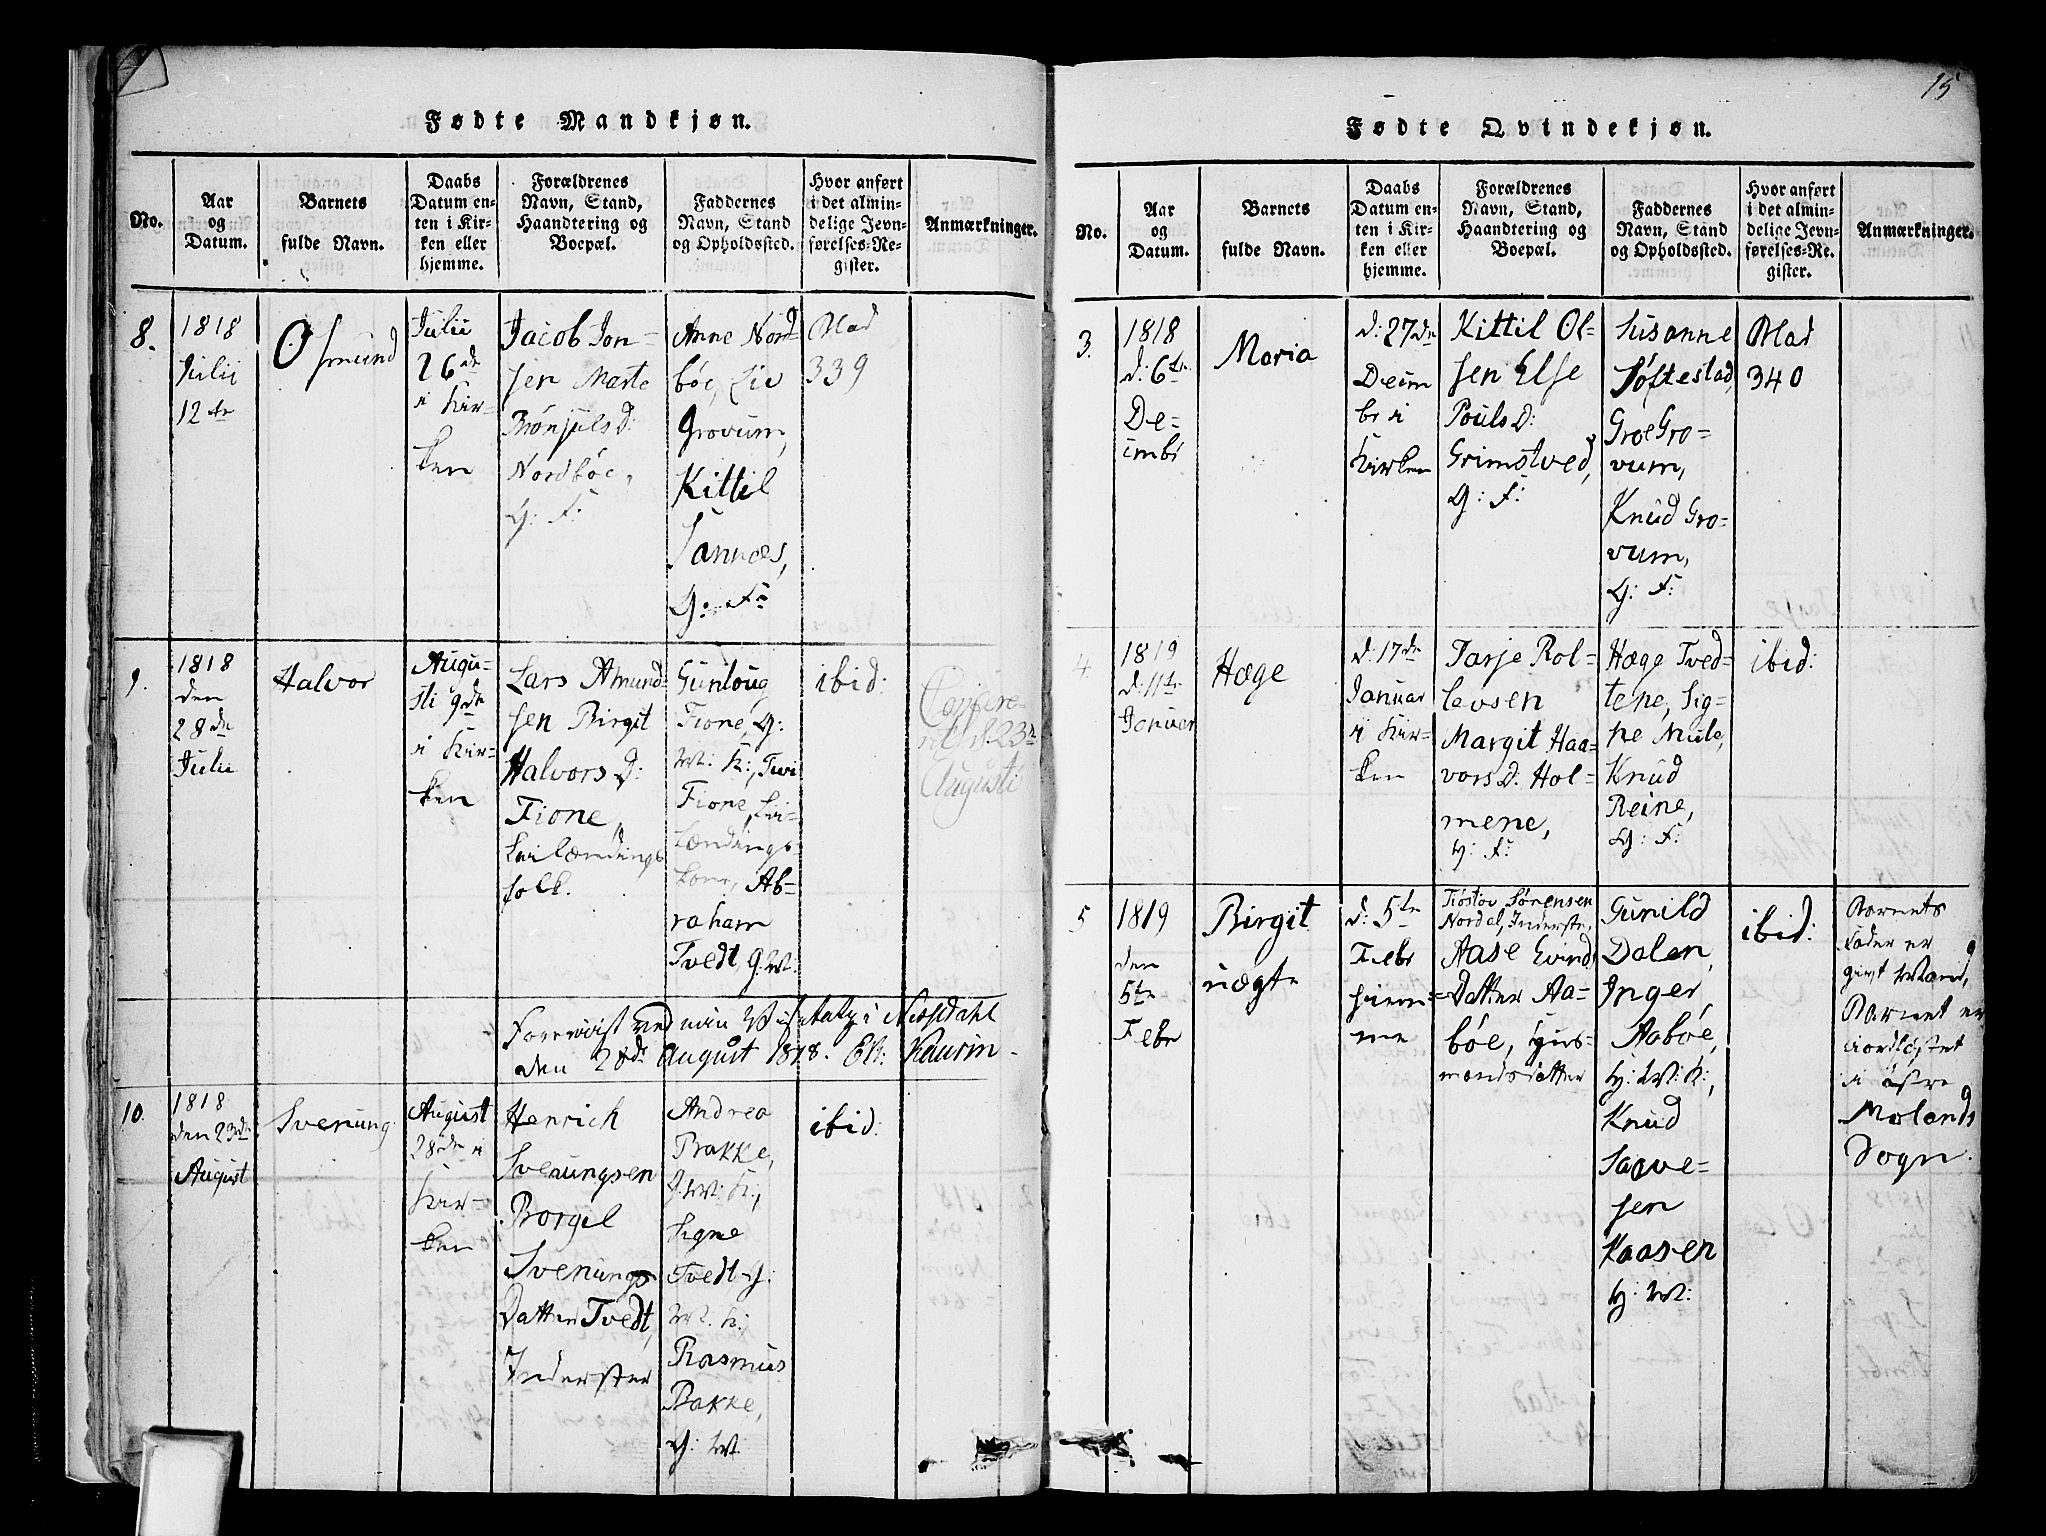 15
Fødte Mandkjøn.
No.
Aar
og
Datum.
Barnets
fulde Navn.
Daabs
Datum en-
ten i Kir-
ken eller
hjemme.
Forældrenes
Navn, Stand,
Haandtering og
Boepæl.
Faddernes
Navn, Stand
og Opholdssted.
Hvor anført
i det almin-
delige Jevn-
førelses-Re-
gister.
Anmærkninger.
8.
1818
Julii
12te
Osmund
Julii
26de
i Kir-
ken
Jacob Jon-
sen Marte
Brønjulsd:
Nordbøe,
G: F:
Anne Nord-
bøe, Liv
Grovum,
Kittil
Sannæs,
G: F:
Blad
339
9.
1818
den
28de
Julii
Halvor
Augu-
sti 9de
i Kir-
ken
Lars Amund-
sen Birgit
Halvors D:
Fione,
Huslændings
folk.
Gunloug
Fione, G:
M: K:, Tvi
Fione, Hus-
lændings-
kone, Ab-
raham
Tvedt, G: M:
ibid:
Confirme-
ret 1823
Augusti
Foreviist ved min Visitatz i Nissedahl
den 28de August 1818. Eb: Kaurin.
10.
1818
den 23de
August
Svenung
August
28de i
Kir-
ken
Henrich
Svenungsen
Borgil
Svenungs
Datter Tvedt,
Inderster
Andrea
Bakke,
G: M: K:,
Signe
Tvedt G:
M: K:,
Rasmus
Bakke,
G: M:
ibid:
Fødte Qvindekjøn.
No.
Aar
og
Datum.
Barnets
fulde Navn.
Daabs
Datum en-
ten i Kir-
ken eller
hjemme.
Forældrenes
Navn, Stand,
Haandtering og
Boepæl.
Faddernes
Navn, Stand
og Opholdssted.
Hvor anført
i det almin-
delige Jevn-
førelses-Re-
gister.
Anmærkninger.
3.
1818
d: 6te
De-
cembr
Maria
d: 27de
Decem
br i
Kirken
Kittil Ol-
sen Else
Pouls D:
Grimstved,
G: F:
Susanne
Søftestad,
Groe Gro-
vum,
Knud Gro-
vum,
G: F:
Blad
340
4.
1819
d: 11te
Januar
Hæge
d: 17de
Januar
i Kir-
ken
Tarje Rol-
levsen
Margit Haa-
vors D: Hol-
mene,
G: F:
Hæge Tved-
tene, Sig-
ne Mule,
Knud
Reine,
G: F:
ibid:
5
1819
den
5te
Febr
Birgit
uægte
d: 5te
Febr
hiem-
me
Tiøstov Sørensen
Nordal, Inderste,
Aase Evind
Datter Aa-
bøe, Huus-
mandsdatter
Gunild
Dalen,
Inger
Aabøe,
G: M: K:,
Knud
Sawe-
sen
Kaasen
G: M:
ibid:
Barnets
Fader er
gift Mand,
Barnet er
avlet
i østre
Molands
Sogn.